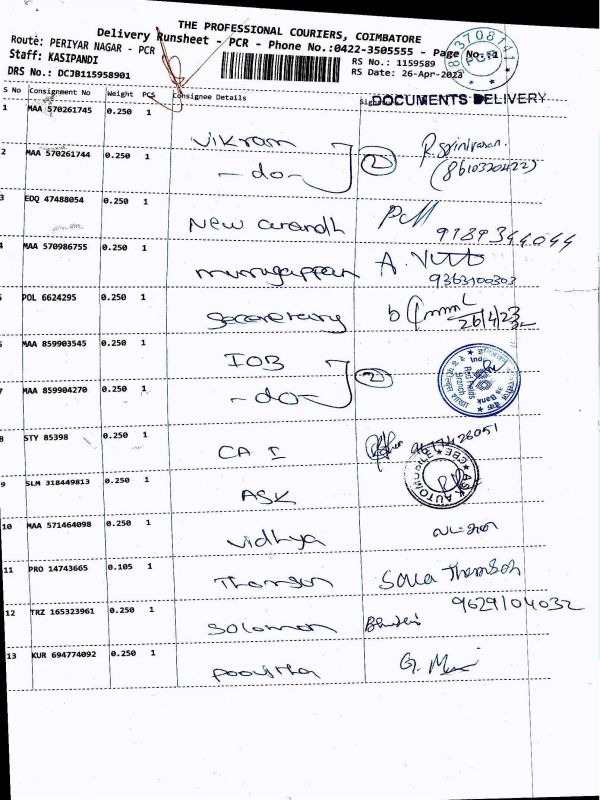 THE PROFESSIONAL COURIERS, COIMBATORE
Delivery Runsheet - PCR - Phone No.:0422-3505555 - Page No.:1
Route: PERIYAR NAGAR - PCR
Staff: KASIPANDI
RS No.: 1159589
DRS No.: DCJB115958901
RS Date: 26-Apr-2023
S No Consignment No Weight PCS Consignee Details
DOCUMENTS DELIVERY
1 MAA 570261745 0.250 1 Vikram
R. Srinivasan.
2 MAA 570261744 0.250 1 -do- 2
(8610320422)
3 EDQ 47488054 0.250 1 New anandh
9189344044
4 MAA 570986755 0.250 1 murugappan A.
9363100303
5 POL 6624295 0.250 1 Secretary
26/4/23
6 MAA 859903545 0.250 1 IOB
7 MAA 859904270 0.250 1 -do- 2
Red Fields
Branch
8 STY 85398 0.250 1 CA I
9 SLM 318449813 0.250 1 ASK
ASK AUTOMOBILE CBE
10 MAA 571464098 0.250 1 Vidhya
11 PRO 14743665 0.105 1 Thomson Sona Thomson
9629104032
12 TRZ 165323961 0.250 1 Solomon
13 KUR 694774092 0.250 1 Poojitha G.